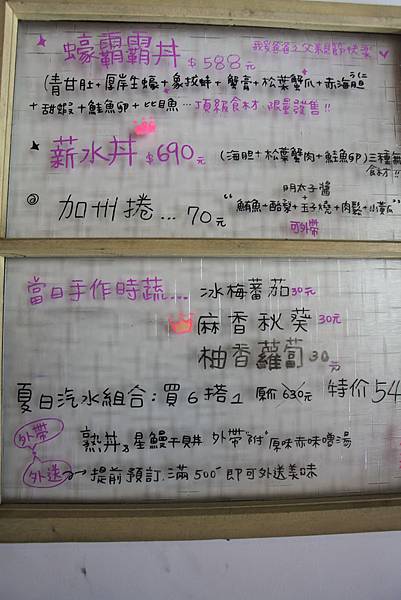 蠔霸霸丼 $588元
我愛爸爸之父親節快樂
(青甘肚+厚岸生蠔+象拔蚌+蟹膏+松葉蟹爪+赤海膽
+甜蝦+鮭魚卵+比目魚…頂級食材.限量發售!!
薪水丼 $690元 (海膽+松葉蟹肉+鮭魚卵)三種
食材!!
@ 加州捲…70元
明太子醬
"鮪魚+酪梨+玉子燒+肉鬆+小黃瓜"
可外帶
當日手作時蔬… 冰梅蕃茄30元
麻香秋葵 30元
柚香蘿蔔 30元
夏日汽水組合:買6搭1 原價630元 特價54
外帶 熟丼 星鰻干貝丼 外帶"附"原味赤味噌湯
外送 提前預訂.滿500 即可外送美味